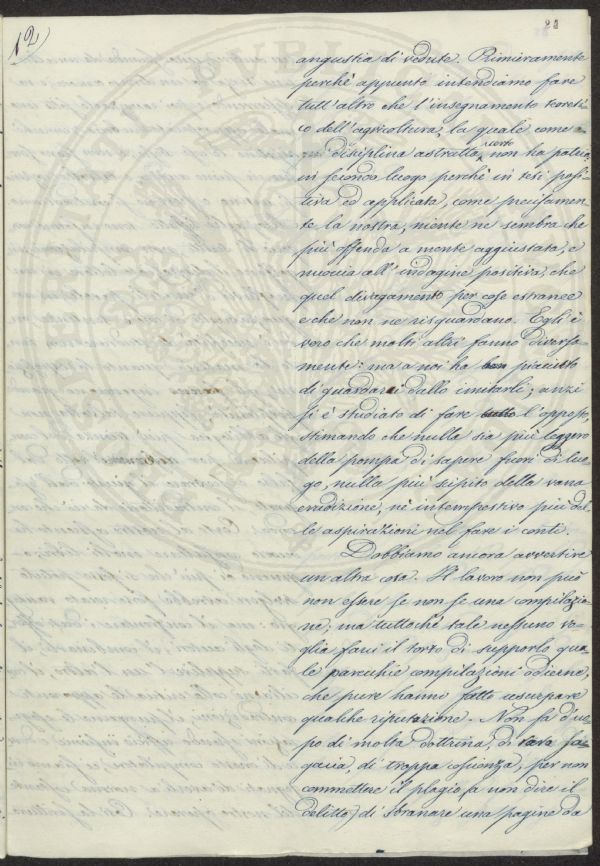 12)
28
angustia di vedute. Primieramente
perchè appunto intendiamo fare
tutt'altro che l'insegnamento teoreti-
co dell'agricoltura, la quale come
disciplina astratta, certo non ha patria;
in secondo luogo perchè in tesi posi-
tiva ed applicata, come precisamen-
te la nostra, niente ne sembra che
più offenda a mente aggiustata, e
nuoccia all'indagine positiva, che
quel divagamento per cose estranee
e che non ne risguardano. Egli è
vero che molti altri fanno diversa-
mente: ma a noi ha ben piaciuto
di guardarci dallo imitarli; anzi
si è studiato di fare tutto l'opposto,
stimando che nulla sia più leggero
della pompa di sapere fuori di luo-
go, nulla più sipito della vana
erudizione, nè intempestivo più del-
le aspirazioni nel fare i conti.
Dobbiamo ancora avvertire
un'altra cosa. Il lavoro non può
non essere se non se una compilazio-
ne; ma tuttochè tale nessuno vo-
glia farci il torto di supporlo qua-
le parecchie compilazioni odierne,
che pure hanno fatto usurpare
qualche riputazione. Non fa d'uo-
po di molta dottrina, di rara sa-
gacia, di troppa coscienza, per non
commettere il plagio (a non dire il
delitto) di sbranare una pagine da